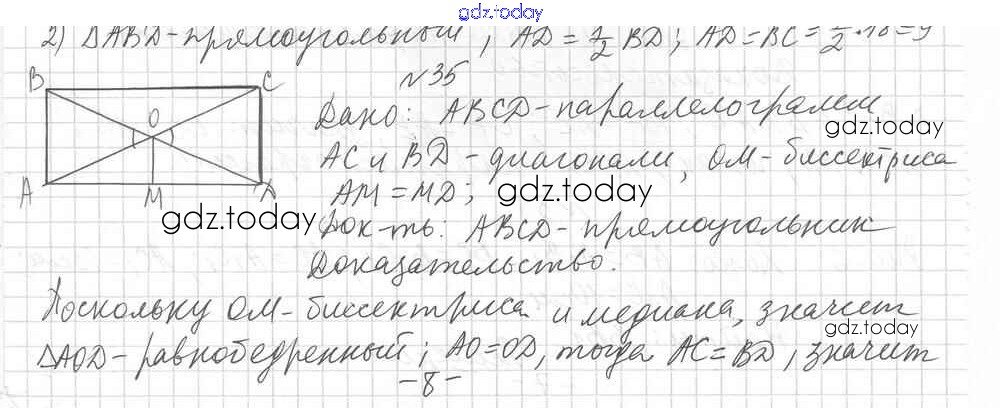 gdz.today
2) ΔABD - прямоугольный; AD = 1/2 BD; AD = BC = 1/2 · 18 = 9
№35
B C
O
A M D
Дано: ABCD - параллелограмм
gdz.today
AC и BD - диагонали, OM - биссектриса
AM = MD;
gdz.today gdz.today
Док-ть: ABCD - прямоугольник
Доказательство.
gdz.today
Поскольку OM - биссектриса и медиана, значит
gdz.today
ΔAOD - равнобедренный; AO = OD, тогда AC = BD, значит
- 8 -